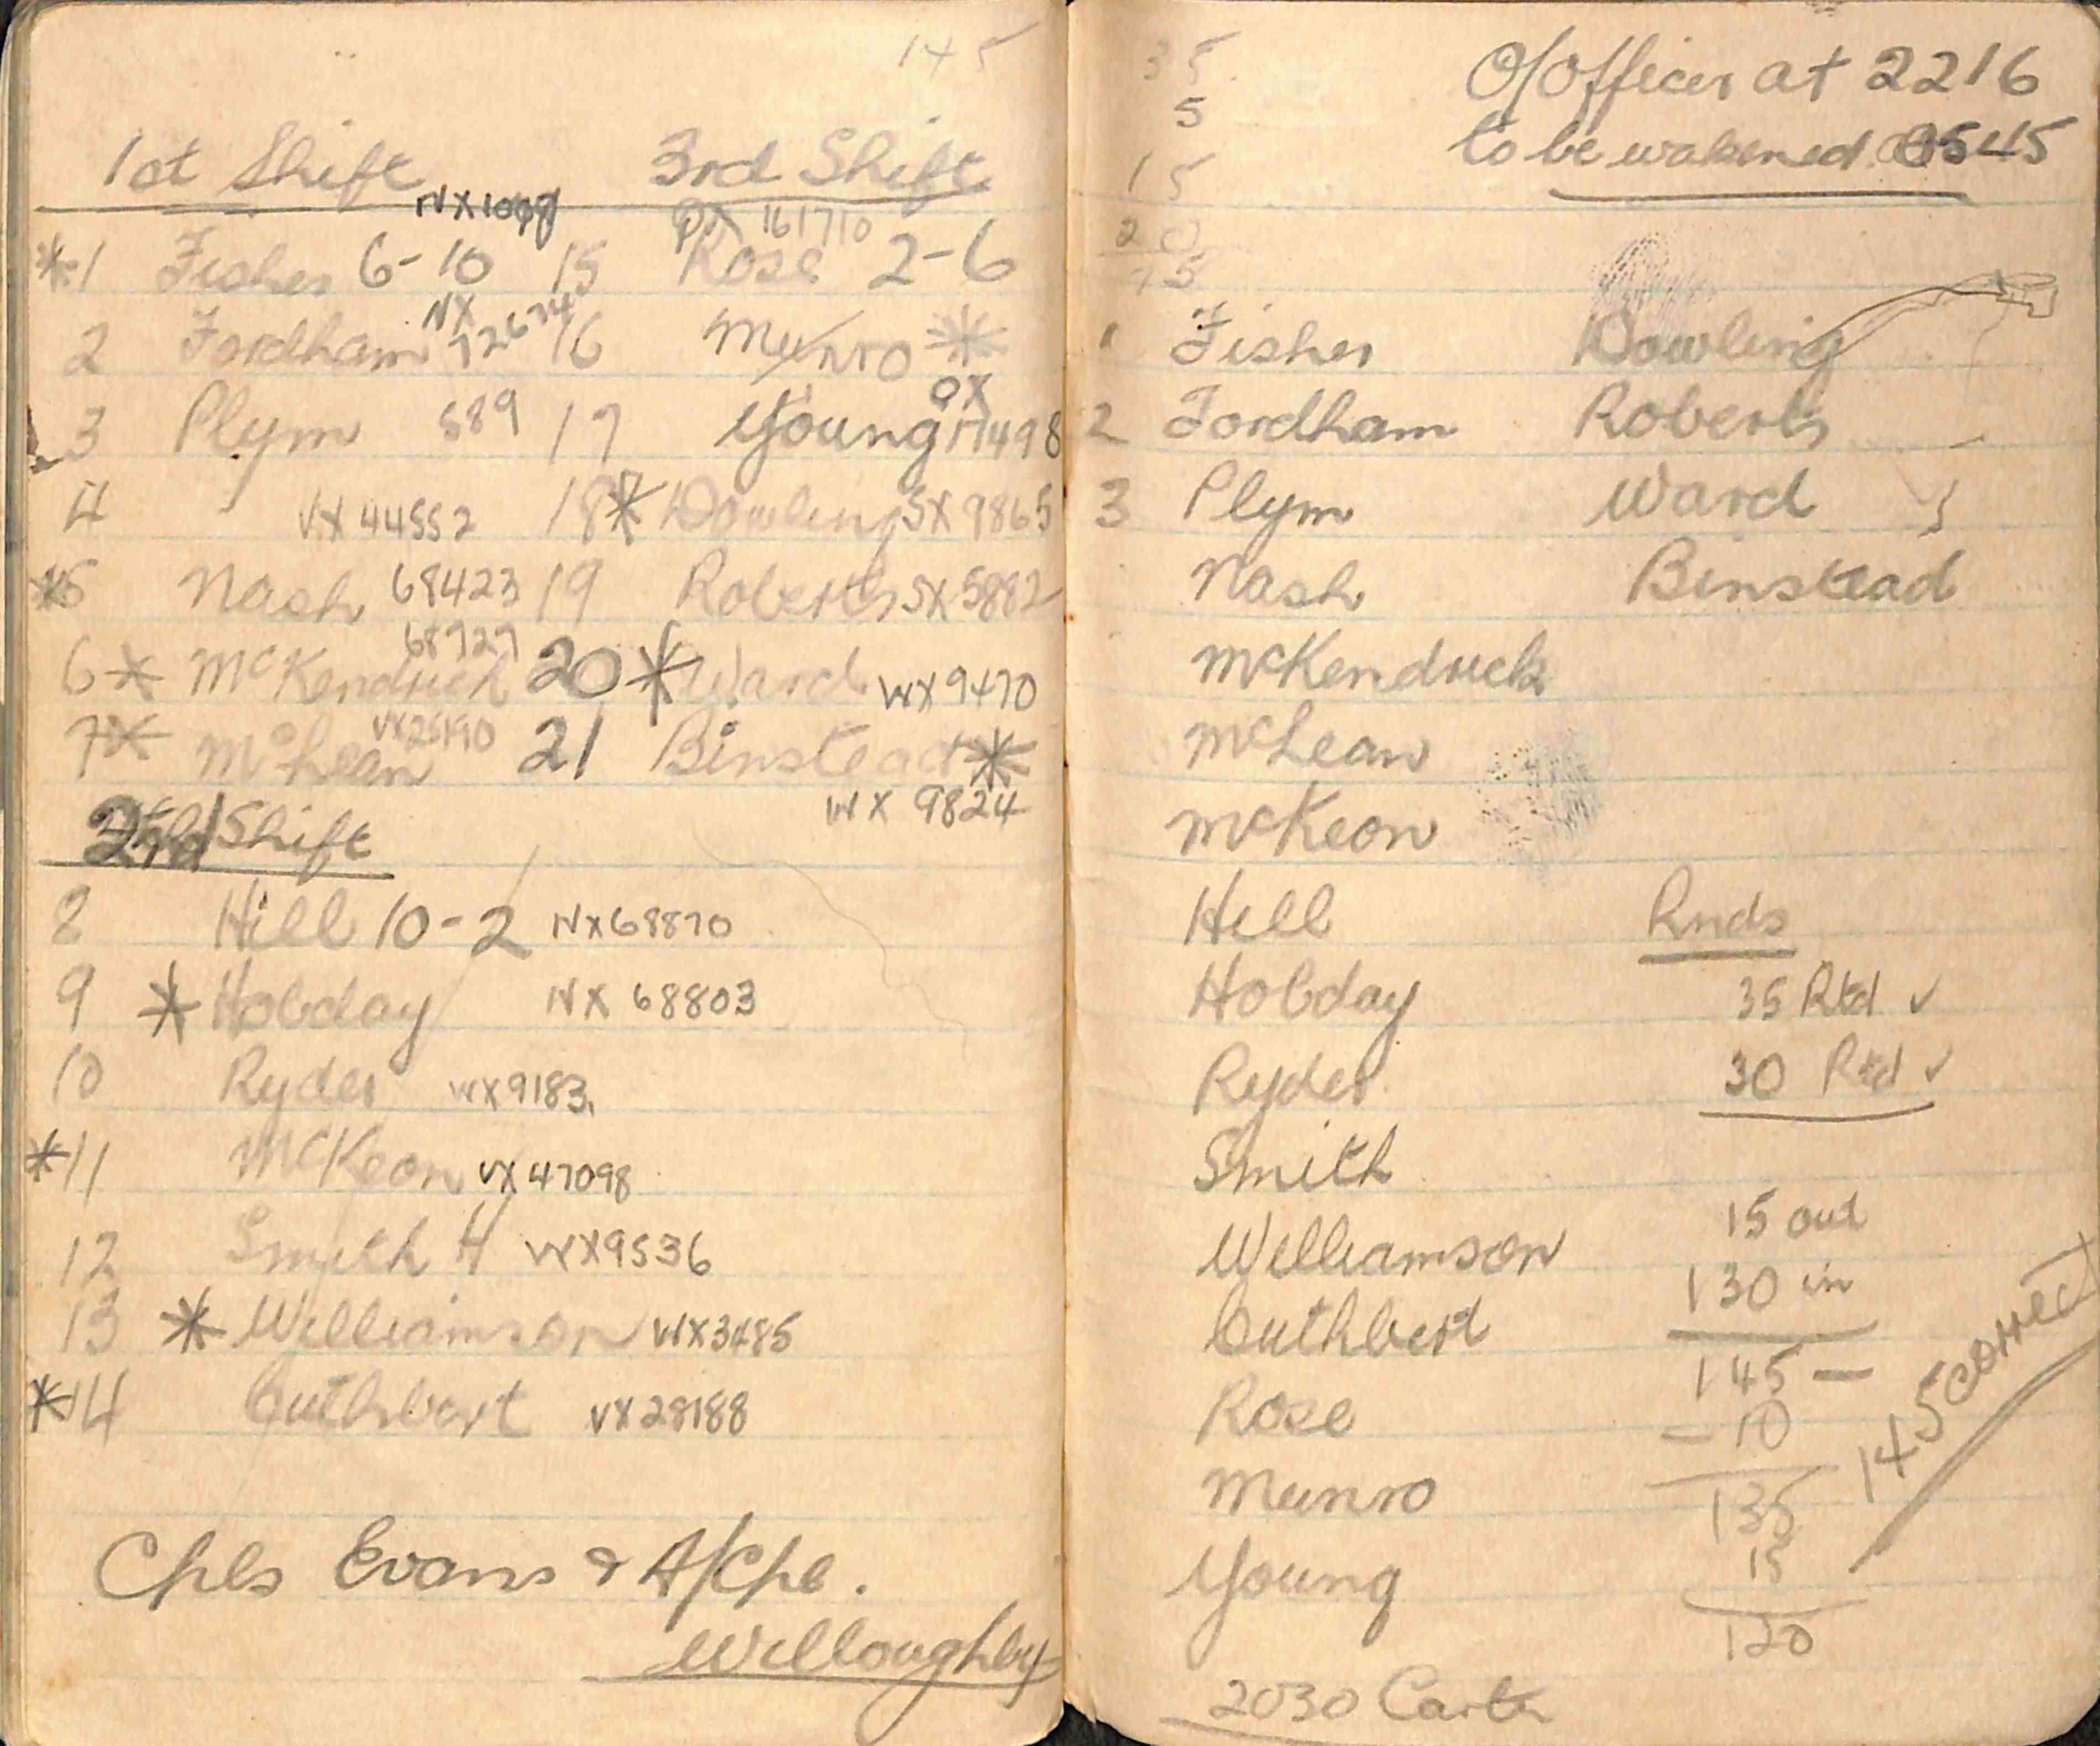 145
1st Shift 3rd Shift
NX
161710
*1 Fisher 6-10 15 Rose 2-6
NX
2 Fordham 16 Munro *
QX
3 Plym 589 17 Young 17498
4 VX 44552 18 * Dowling SX 9865
*5 Nash 68423 19 Roberts SX 5882
68727
6 * McKendrick 20 * Ward WX 9470
VX25190
7 * McLean 21 Binstead *
WX 9824
2nd Shift
8 Hill 10-2 NX68870
9 * Hobday NX 68803
10 Ryder WX9183
*11 McKeon VX47098
12 Smith H WX9536
13 * Williamson WX3485
*14 Cuthbert VX28188
Cpls Evans & A/Cpl.
Willoughby
35
5
15
20
75
O/Officer at 2216
to be wakened 0545
1 Fisher Dowling
2 Fordham Roberts
3 Plym Ward
Nash Binstead
McKendrick
McLean
McKeon
Hill Rnds
Hobday 35 Rtd ✓
Ryder 30 Rtd ✓
Smith
15 out
Williamson
130 in
Cuthbert
145 —
Rose
- 10
145 correct
Munro
135
Young
15
120
2030